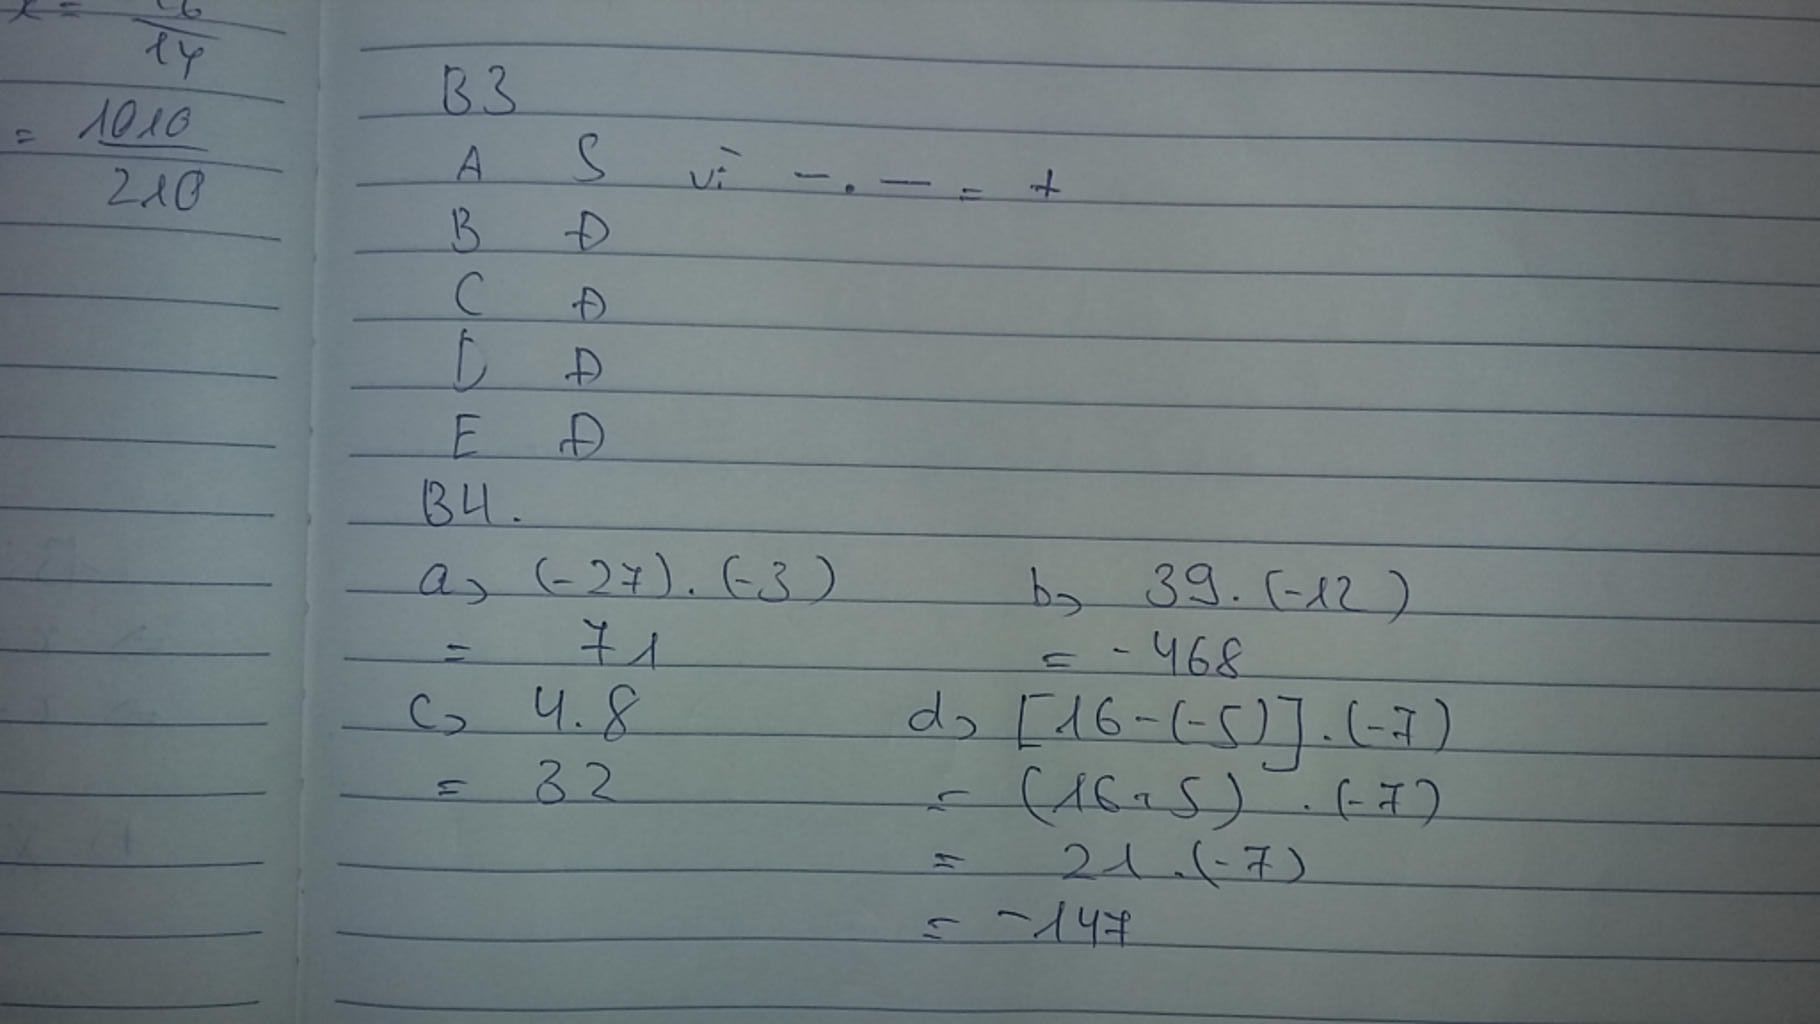 14
= 1010
210
B3
A S vì - . - = +
B Đ
C Đ
D Đ
E Đ
B4.
a, (-27) . (-3) b, 39 . (-12)
= 71 = -468
c, 4.8 d, [16-(-5)] . (-7)
= 32 = (16+5) . (-7)
= 21 . (-7)
= -147